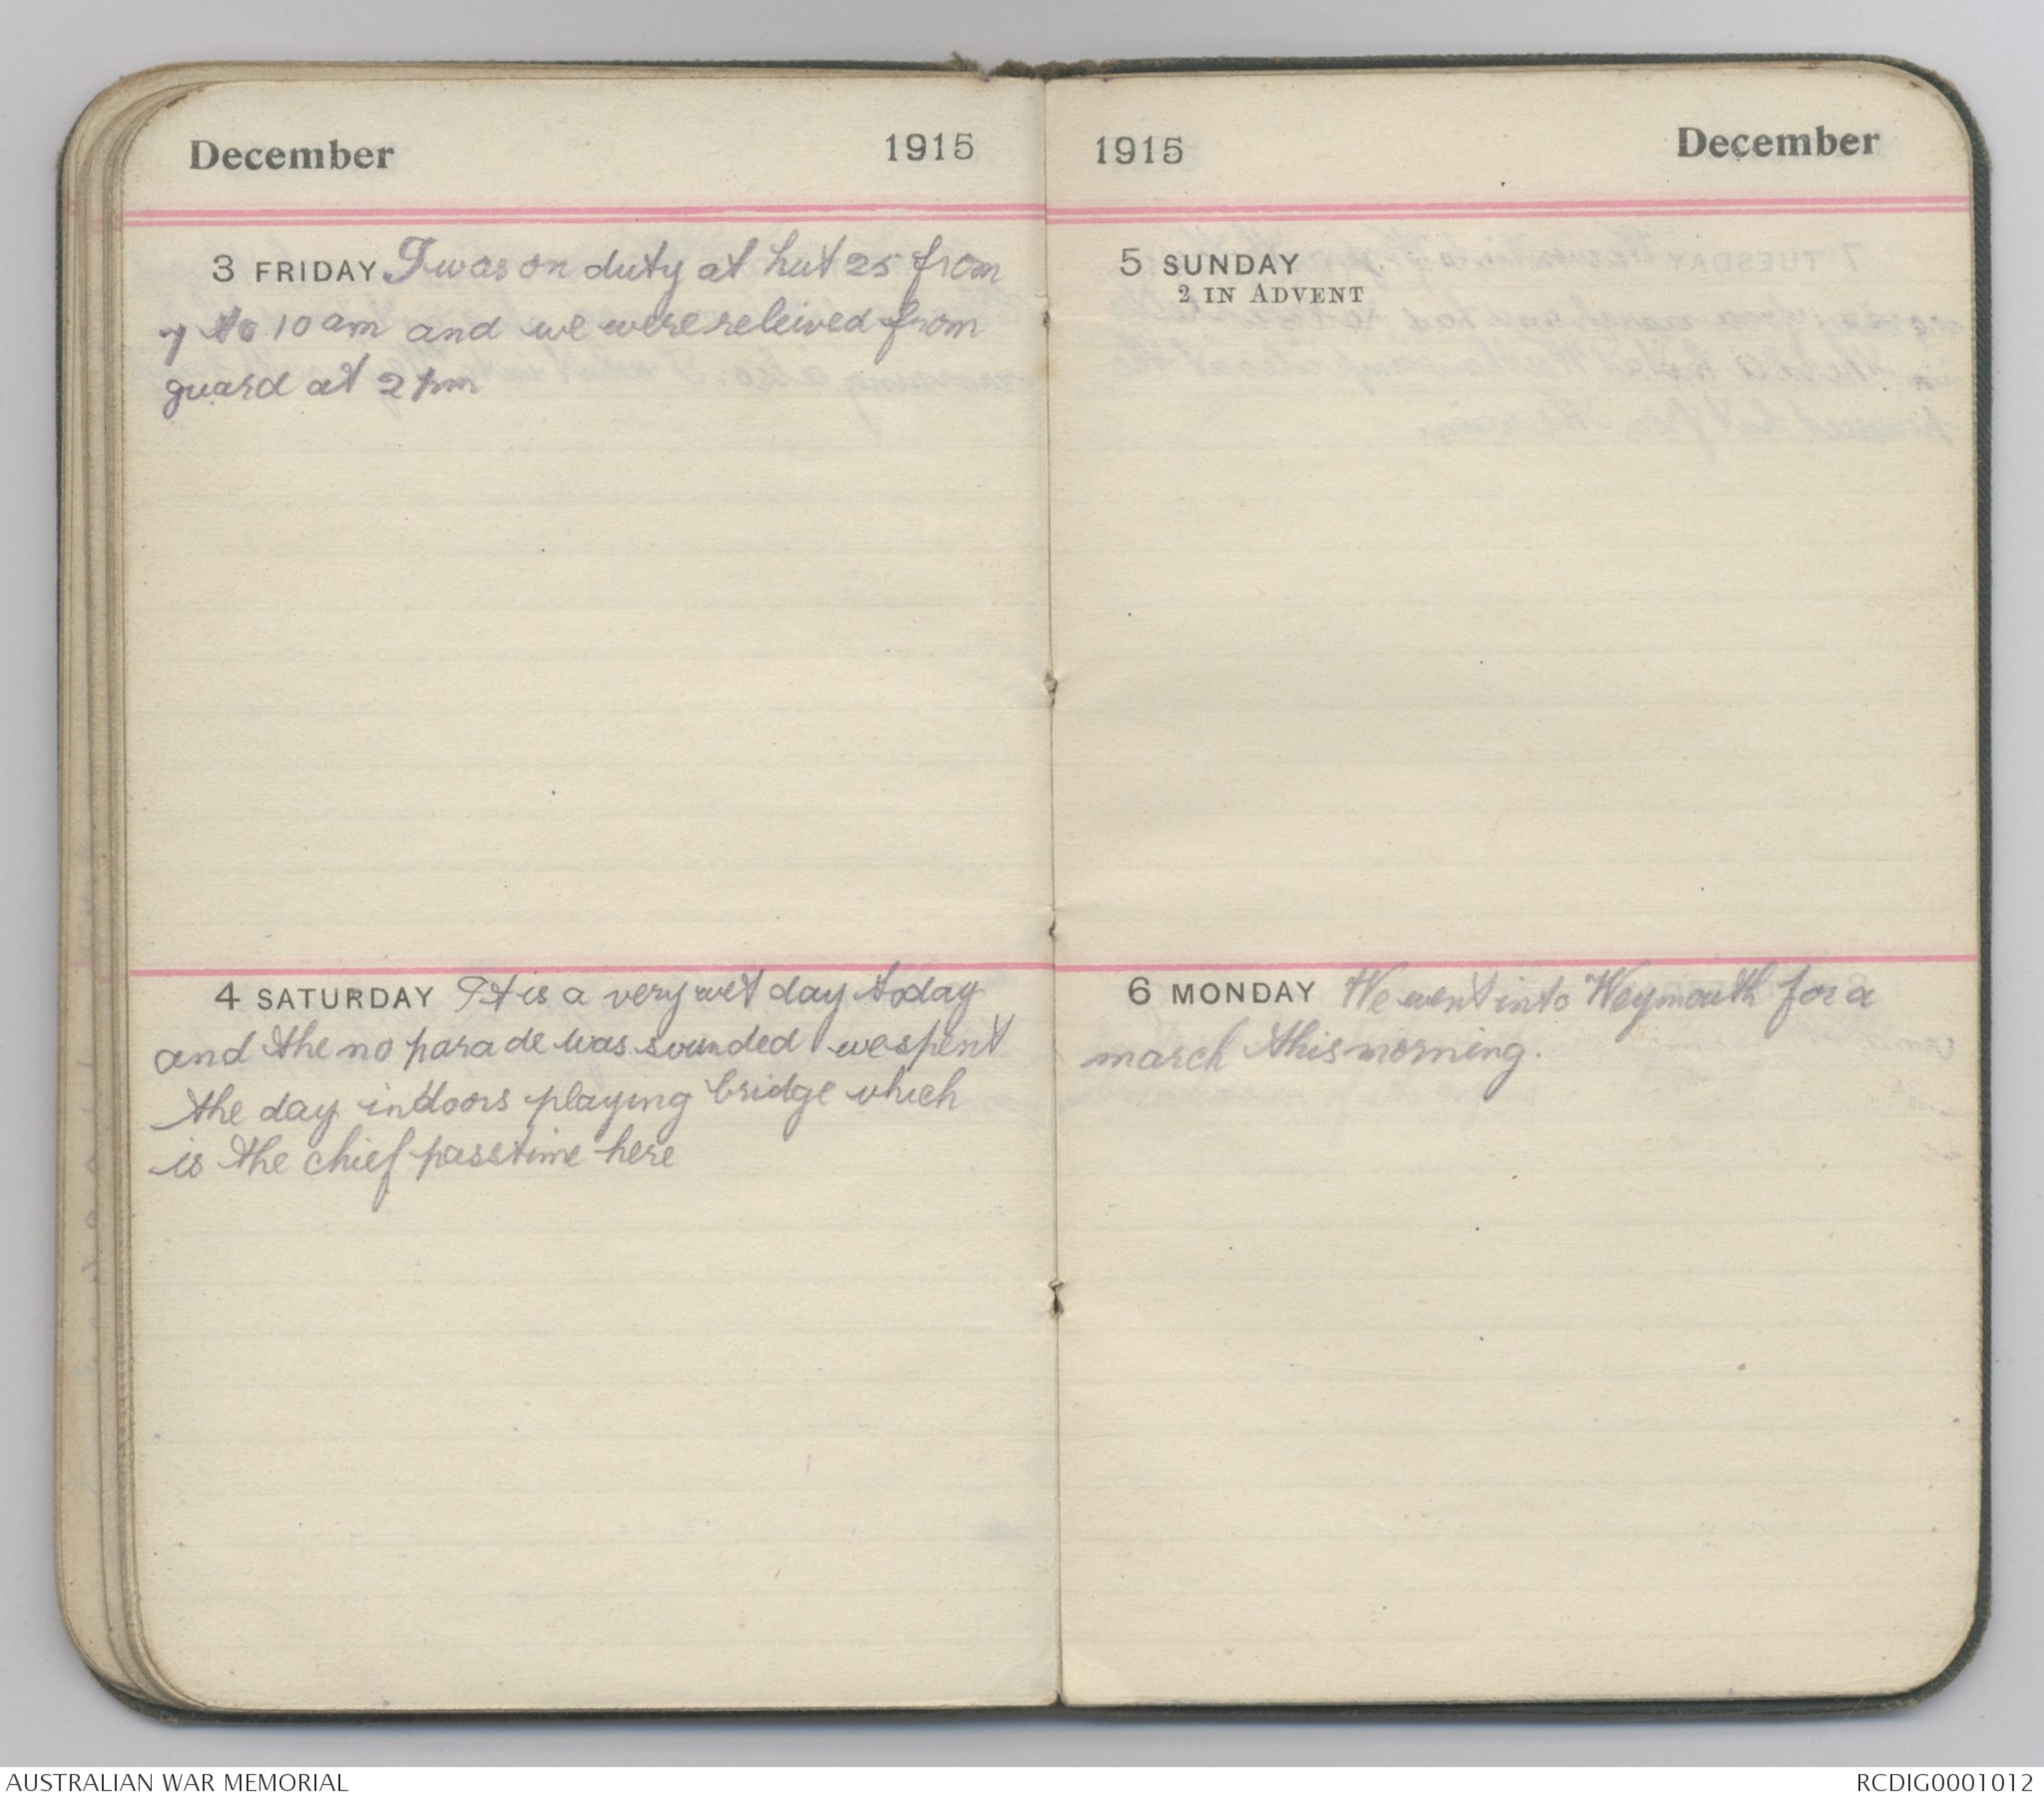 December 1915
3 FRIDAY I was on duty at hut 25 from
7 to 10 am and we were releived from
guard at 2 pm
4 SATURDAY It is a very wet day today
and the no parade was sounded we spent
the day indoors playing bridge which
is the chief passtime here
1915 December
5 SUNDAY
2 IN ADVENT
6 MONDAY We went into Weymouth for a
march this morning.
AUSTRALIAN WAR MEMORIAL
RCDIG0001012